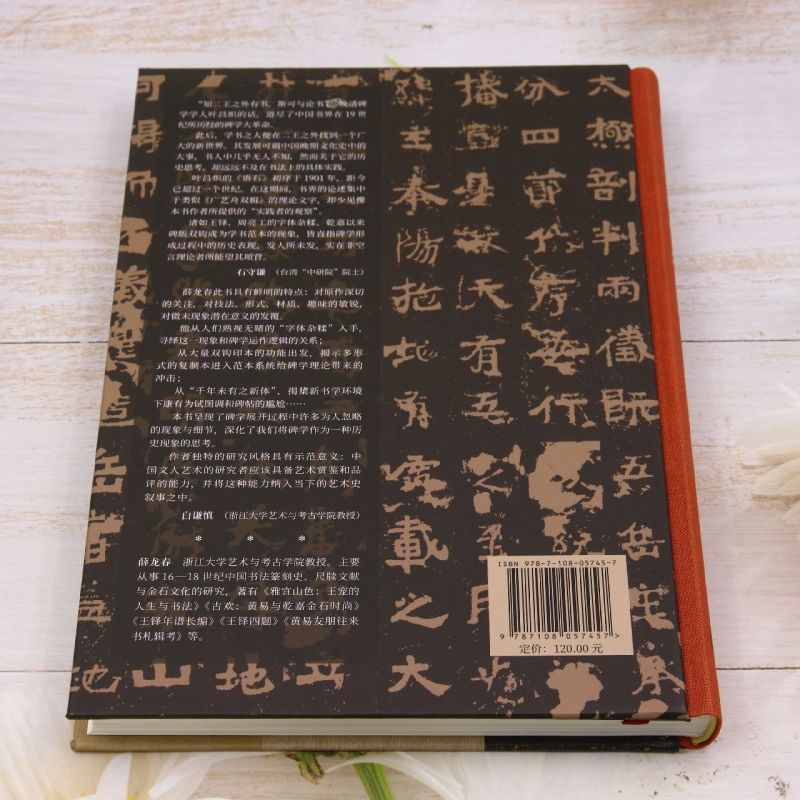 “知二王之外有书，斯可与论书”，晚清碑
学学人叶昌炽的话，道尽了中国书界在19世
纪所历经的碑学大革命。
此后，学书之人便在二王之外找到一个广
大的新世界。其发展可谓中国晚期文化史中的
大事，书人中几乎无人不知，然而关于它的历
史思考，却远远不及在书法上的具体实践。
叶昌炽的《语石》初序于1901年，距今
已超过一个世纪。在这期间，书界的论述集中
于类似《广艺舟双楫》的理论文字，却少见像
本书作者所提供的“实践者的观察”。
诸如王铎、周亮工的字体杂糅、乾嘉以来
碑版双钩成为学书范本的现象，皆直指碑学形
成过程中的历史表现，发人所未发，实在非空
言理论者所能望其项背。
石守谦 （台湾“中研院”院士）
薛龙春此书具有鲜明的特点：对原作深切
的关注，对技法、形式、材质、趣味的敏锐，
对微末现象潜在意义的发覆。
他从人们熟视无睹的“字体杂糅”入手，
寻绎这一现象和碑学运作逻辑的关系；
从大量双钩印本的功能出发，揭示多形
式的复制本进入范本系统给碑学理论带来的
冲击；
从“千年未有之新体”，揭橥新书学环境
下康有为试图调和碑帖的尴尬……
本书呈现了碑学展开过程中许多为人忽略
的现象与细节，深化了我们将碑学作为一种历
史现象的思考。
作者独特的研究风格具有示范意义：中
国文人艺术的研究者应该具备艺术赏鉴和品
评的能力，并将这种能力纳入当下的艺术史
叙事之中。
白谦慎 （浙江大学艺术与考古学院教授）
* * *
薛龙春 浙江大学艺术与考古学院教授。主要
从事16—18世纪中国书法篆刻史、尺牍文献
与金石文化的研究，著有《雅宜山色：王宠的
人生与书法》《古欢：黄易与乾嘉金石时尚》
《王铎年谱长编》《王铎四题》《黄易友朋往来
书札辑考》等。
太極剖判兩儀既
分四
播
天有五
主
奉陽
地有
載之大
岳
地
山
ISBN 978-7-108-05745-7
9 787108 057457 >
定价：120.00 元